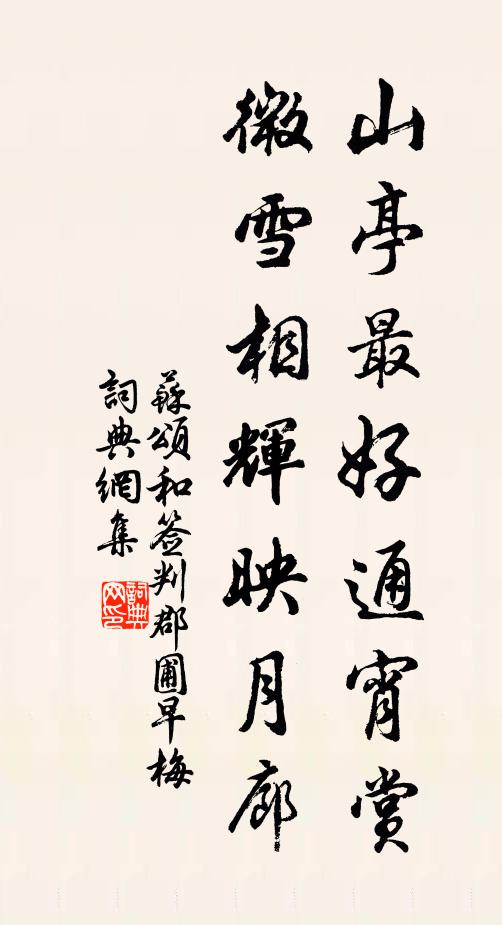 山亭最好通宵賞
微雪相輝映月廊
蘇頌和簽判郡圃早梅
詞典網集
詞典网印